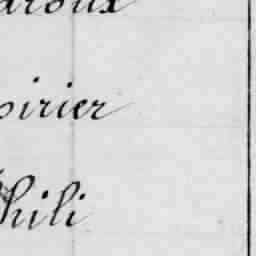 aroux
oirier
hili